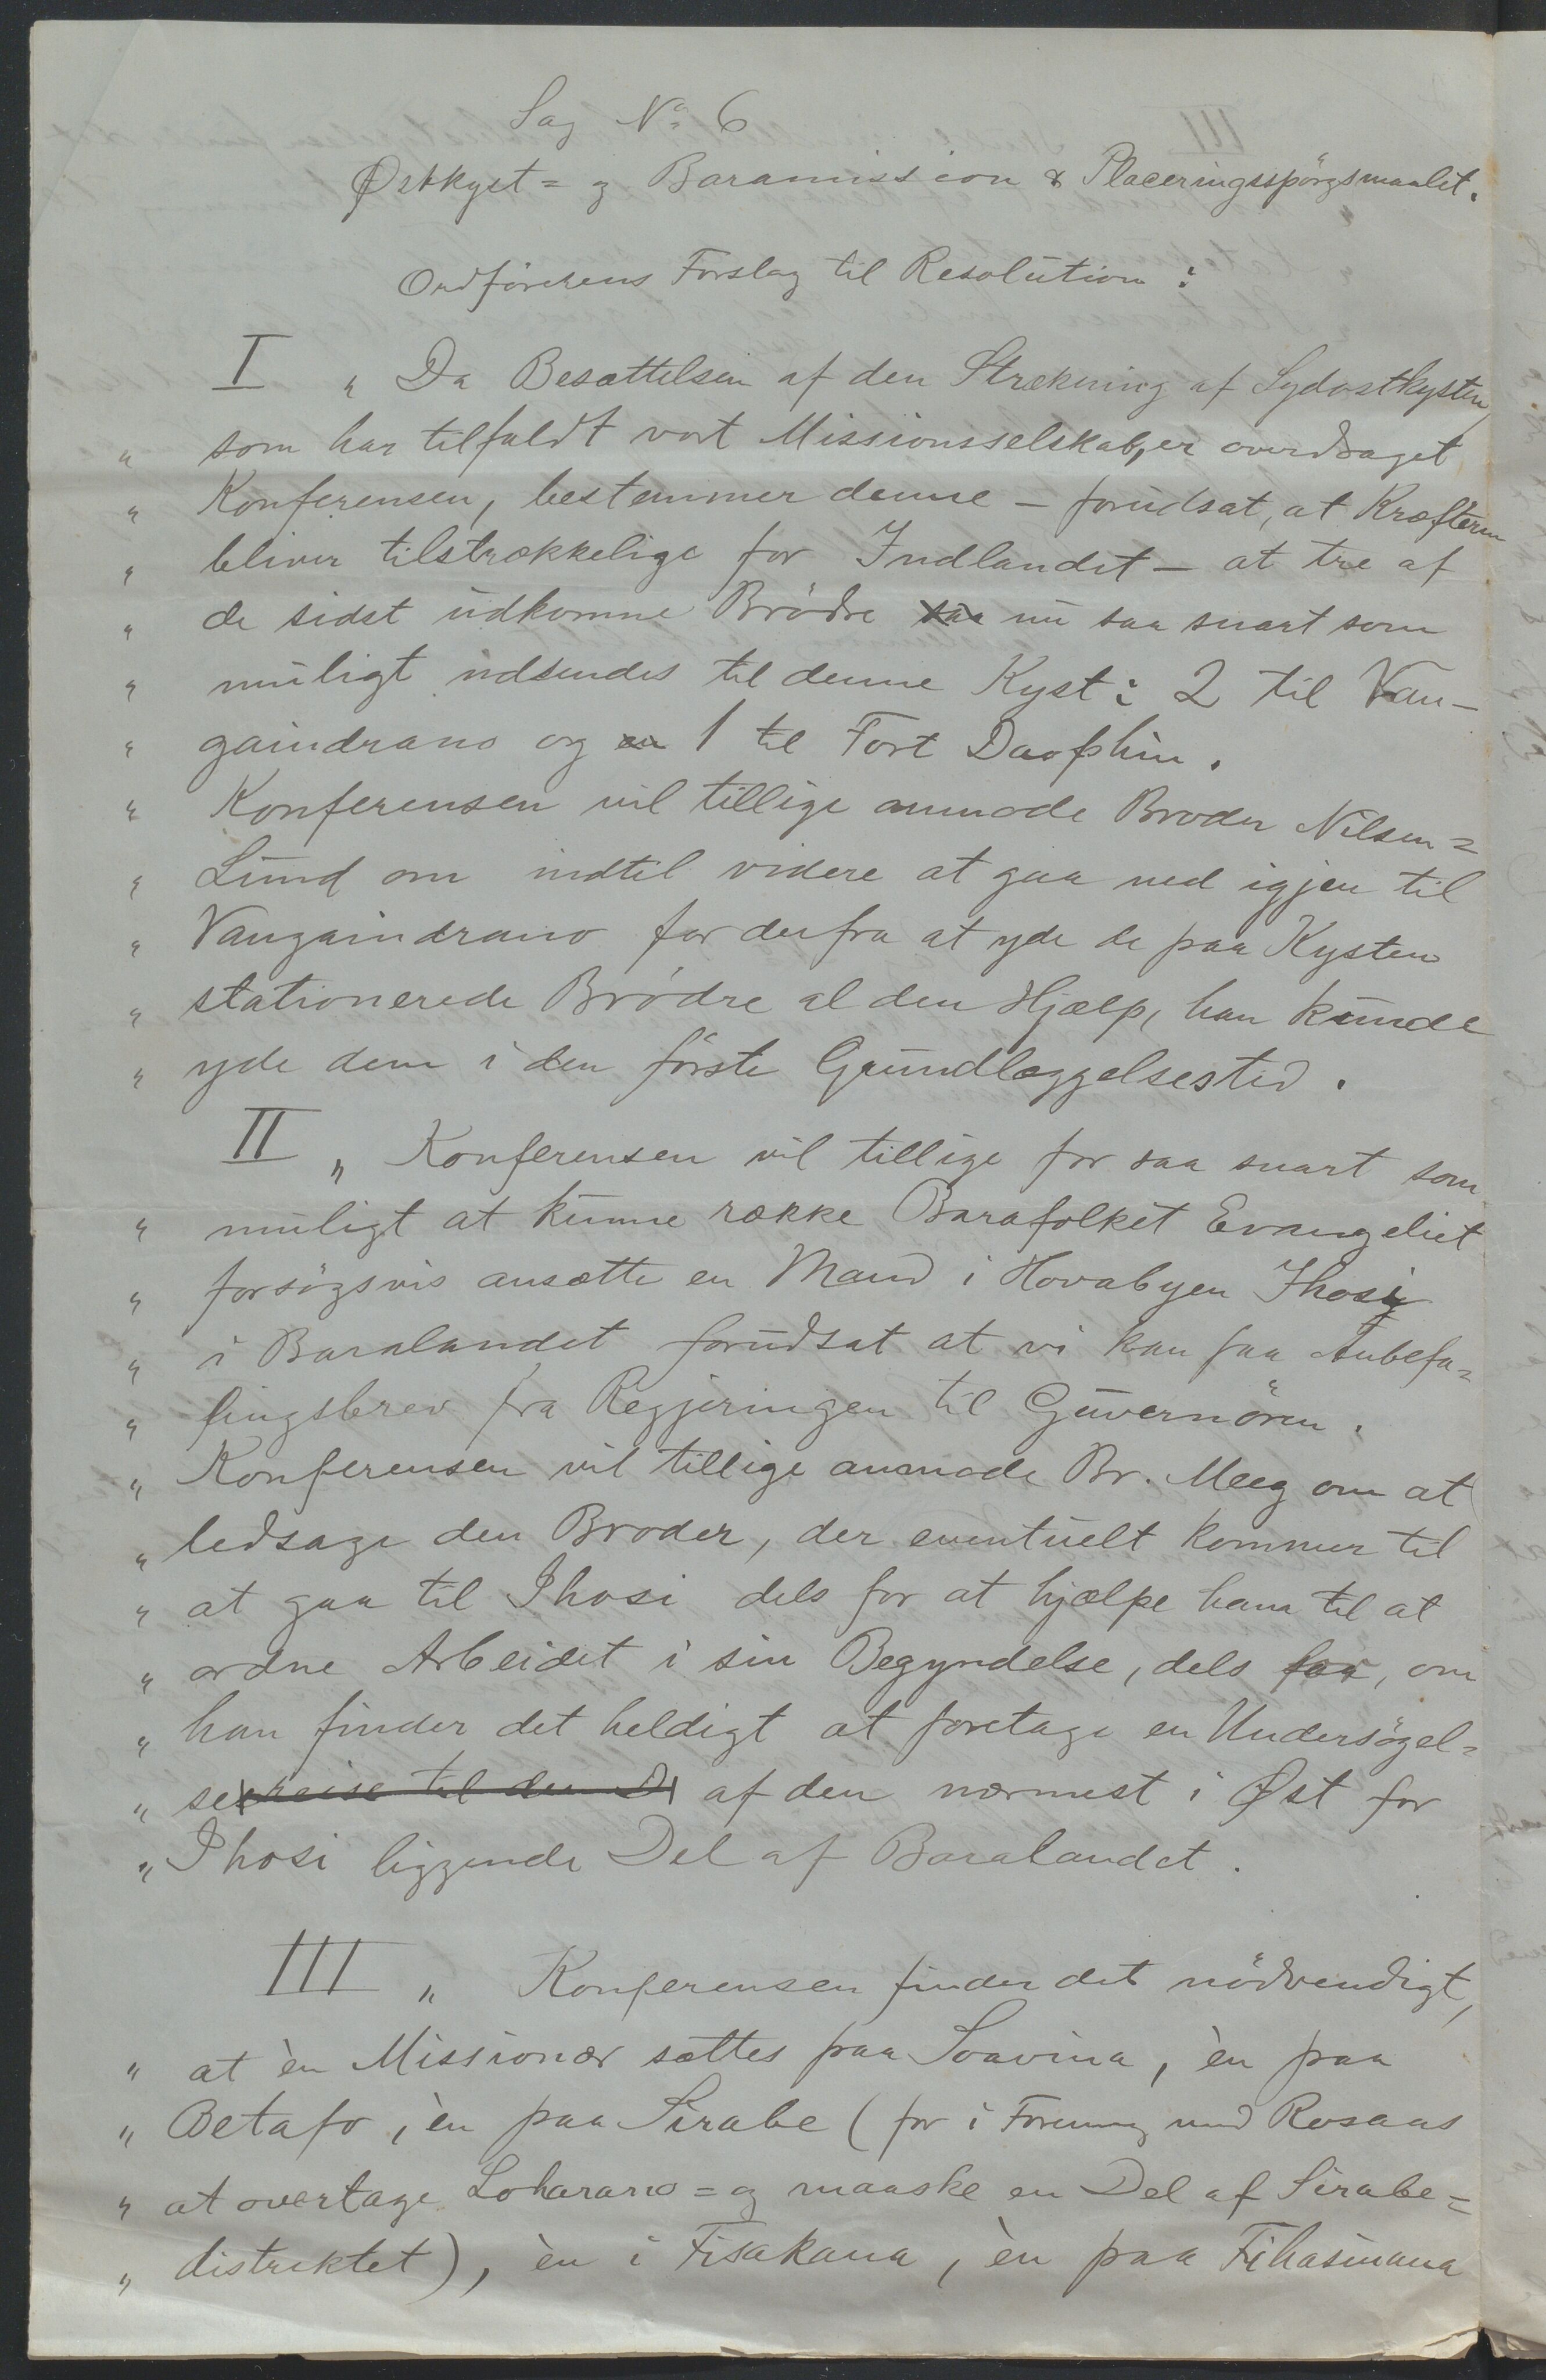 Sag No 6
Østkyst= og Baramission & Placeringsspörgsmaalet.
Ordförerens Forslag til Resolution:
I " Da Besættelsen af den Strækning af Sydostkysten,
" som har tilfaldt vort Missionsselskab, er overdraget
" Konferensen, bestemmer denne – forudsat, at Kræfterne
" bliver tilstrækkelige for Indlandet – at tre af
" de sidst udkomne Brödre saa nu saa snart som
" muligt udsendes til denne Kyst: 2 til Van-
" gaindrano og en 1 til Fort Daophin.
" Konferensen vil tillige anmode Broder Nilsen=
" Lund om indtil videre at gaa ned igjen til
" Vangaindrano for derfra at yde de paa Kysten
" stationerede Brödre al den Hjælp, han kunde
" yde dem i den förste Grundlæggelsestid.
II " Konferensen vil tillige for saa snart som
" muligt at kunne række Barafolket Evangeliet
" forsögsvis ansætte en Mand i Hovabyen Ihosy
" i Baralandet forudsat at vi kan faa Anbefa=
" lingsbrev fra Regjeringen til Guvernören.
" Konferensen vil tillige anmode Br. Meeg om at
" ledsage den Broder, der eventuelt kommer til
" at gaa til Ihosi dels for at hjælpe ham til at
" ordne Arbeidet i sin Begyndelse, dels for, om
" han finder det heldigt at foretage en Undersögel=
" sesreise til den D af den nærmest i Øst for
" Ihosi liggende Del af Baralandet.
III " Konferensen finder det nödvendigt,
" at èn Missionær sættes paa Soavina, èn paa
" Betafo, èn paa Sirabe (for i Forening med Rosaas
" at overtage Loharano= og maaske en Del af Sirabe=
" distriktet), èn i Fisakana, èn paa Fihasinana